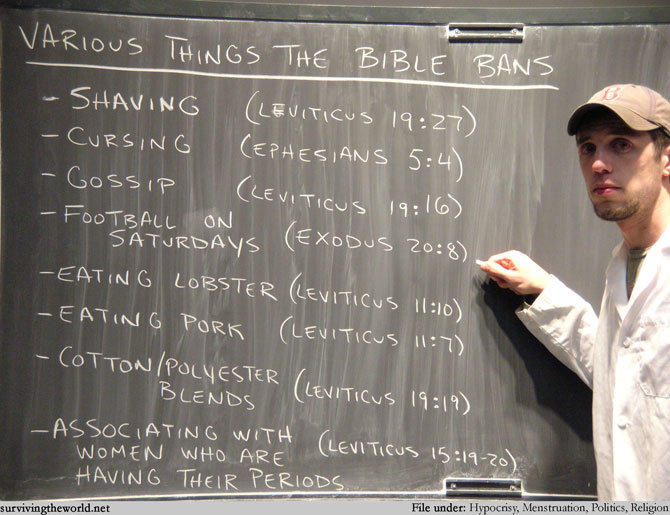 VARIOUS THINGS THE BIBLE BANS
- SHAVING (LEVITICUS 19:27)
- CURSING (EPHESIANS 5:4)
- GOSSIP (LEVITICUS 19:16)
- FOOTBALL ON
SATURDAYS (EXODUS 20:8)
- EATING LOBSTER (LEVITICUS 11:10)
- EATING PORK (LEVITICUS 11:7)
- COTTON/POLYESTER
BLENDS (LEVITICUS 19:19)
- ASSOCIATING WITH
WOMEN WHO ARE (LEVITICUS 15:19-20)
HAVING THEIR PERIODS
B
survivingtheworld.net File under: Hypocrisy, Menstruation, Politics, Religion